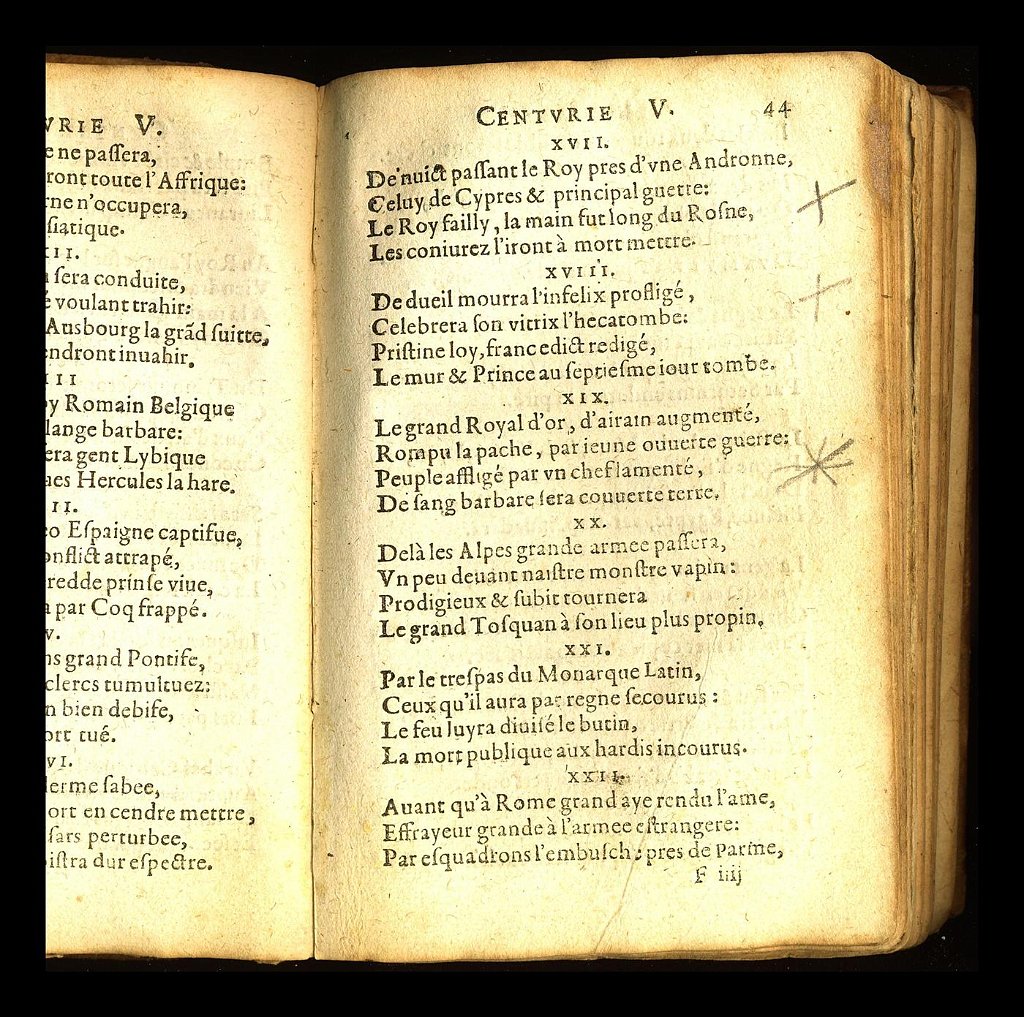 VRIE V.
e ne paſſera,
ront toute l'Affrique:
rne n'occupera,
ſiatique.
II.
ſera conduite,
é voulant trahir:
Ausbourg la grãd ſuitte,
endront inuahir.
III
y Romain Belgique
lange barbare:
era gent Lybique
nes Hercules la hare.
II.
o Eſpaigne captifue,
onflict attrapé,
redde prinſe viue,
a par Coq frappé.
v.
ns grand Pontife,
clercs tumultuez:
n bien debife,
ort tué.
vI.
lerme ſabee,
ort en cendre mettre,
ſars perturbee,
iſtra dur eſpectre.
CENTVRIE V. 44
XVII.
De nuict paſſant le Roy pres d'vne Andronne,
Celuy de Cypres & principal guette:
Le Roy failly, la main fut long du Roſne,
Les coniurez l'iront à mort mettre.
XVIII.
De dueil mourra l'infelix profligé,
Celebrera ſon vitrix l'hecatombe:
Priſtine loy, franc edict redigé,
Le mur & Prince au ſeptieſme iour tombe.
XIX.
Le grand Royal d'or, d'airain augmenté,
Rompu la pache, par ieune ouuerte guerre:
Peuple affligé par vn chef lamenté,
De ſang barbare ſera couuerte terre.
XX.
Delà les Alpes grande armee paſſera,
Vn peu deuant naiſtre monſtre vapin:
Prodigieux & ſubit tournera
Le grand Toſquan à ſon lieu plus propin.
XXI.
Par le treſpas du Monarque Latin,
Ceux qu'il aura par regne ſecourus:
Le feu luyra diuiſé le butin,
La mort publique aux hardis incourus.
XXII.
Auant qu'à Rome grand aye rendu l'ame,
Effrayeur grande à l'armee eſtrangere:
Par eſquadrons l'embuſche pres de Parme,
F iiij